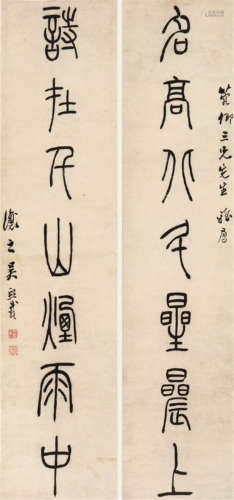 卿三兄先生
名高北斗星辰上
詩在千山煙雨中
讓之吳熙載